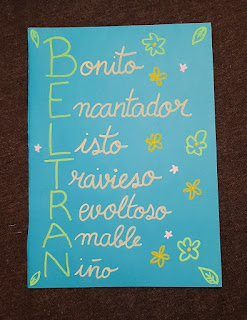 Bonito
Encantador
Listo
Travieso
Revoltoso
Amable
Niño